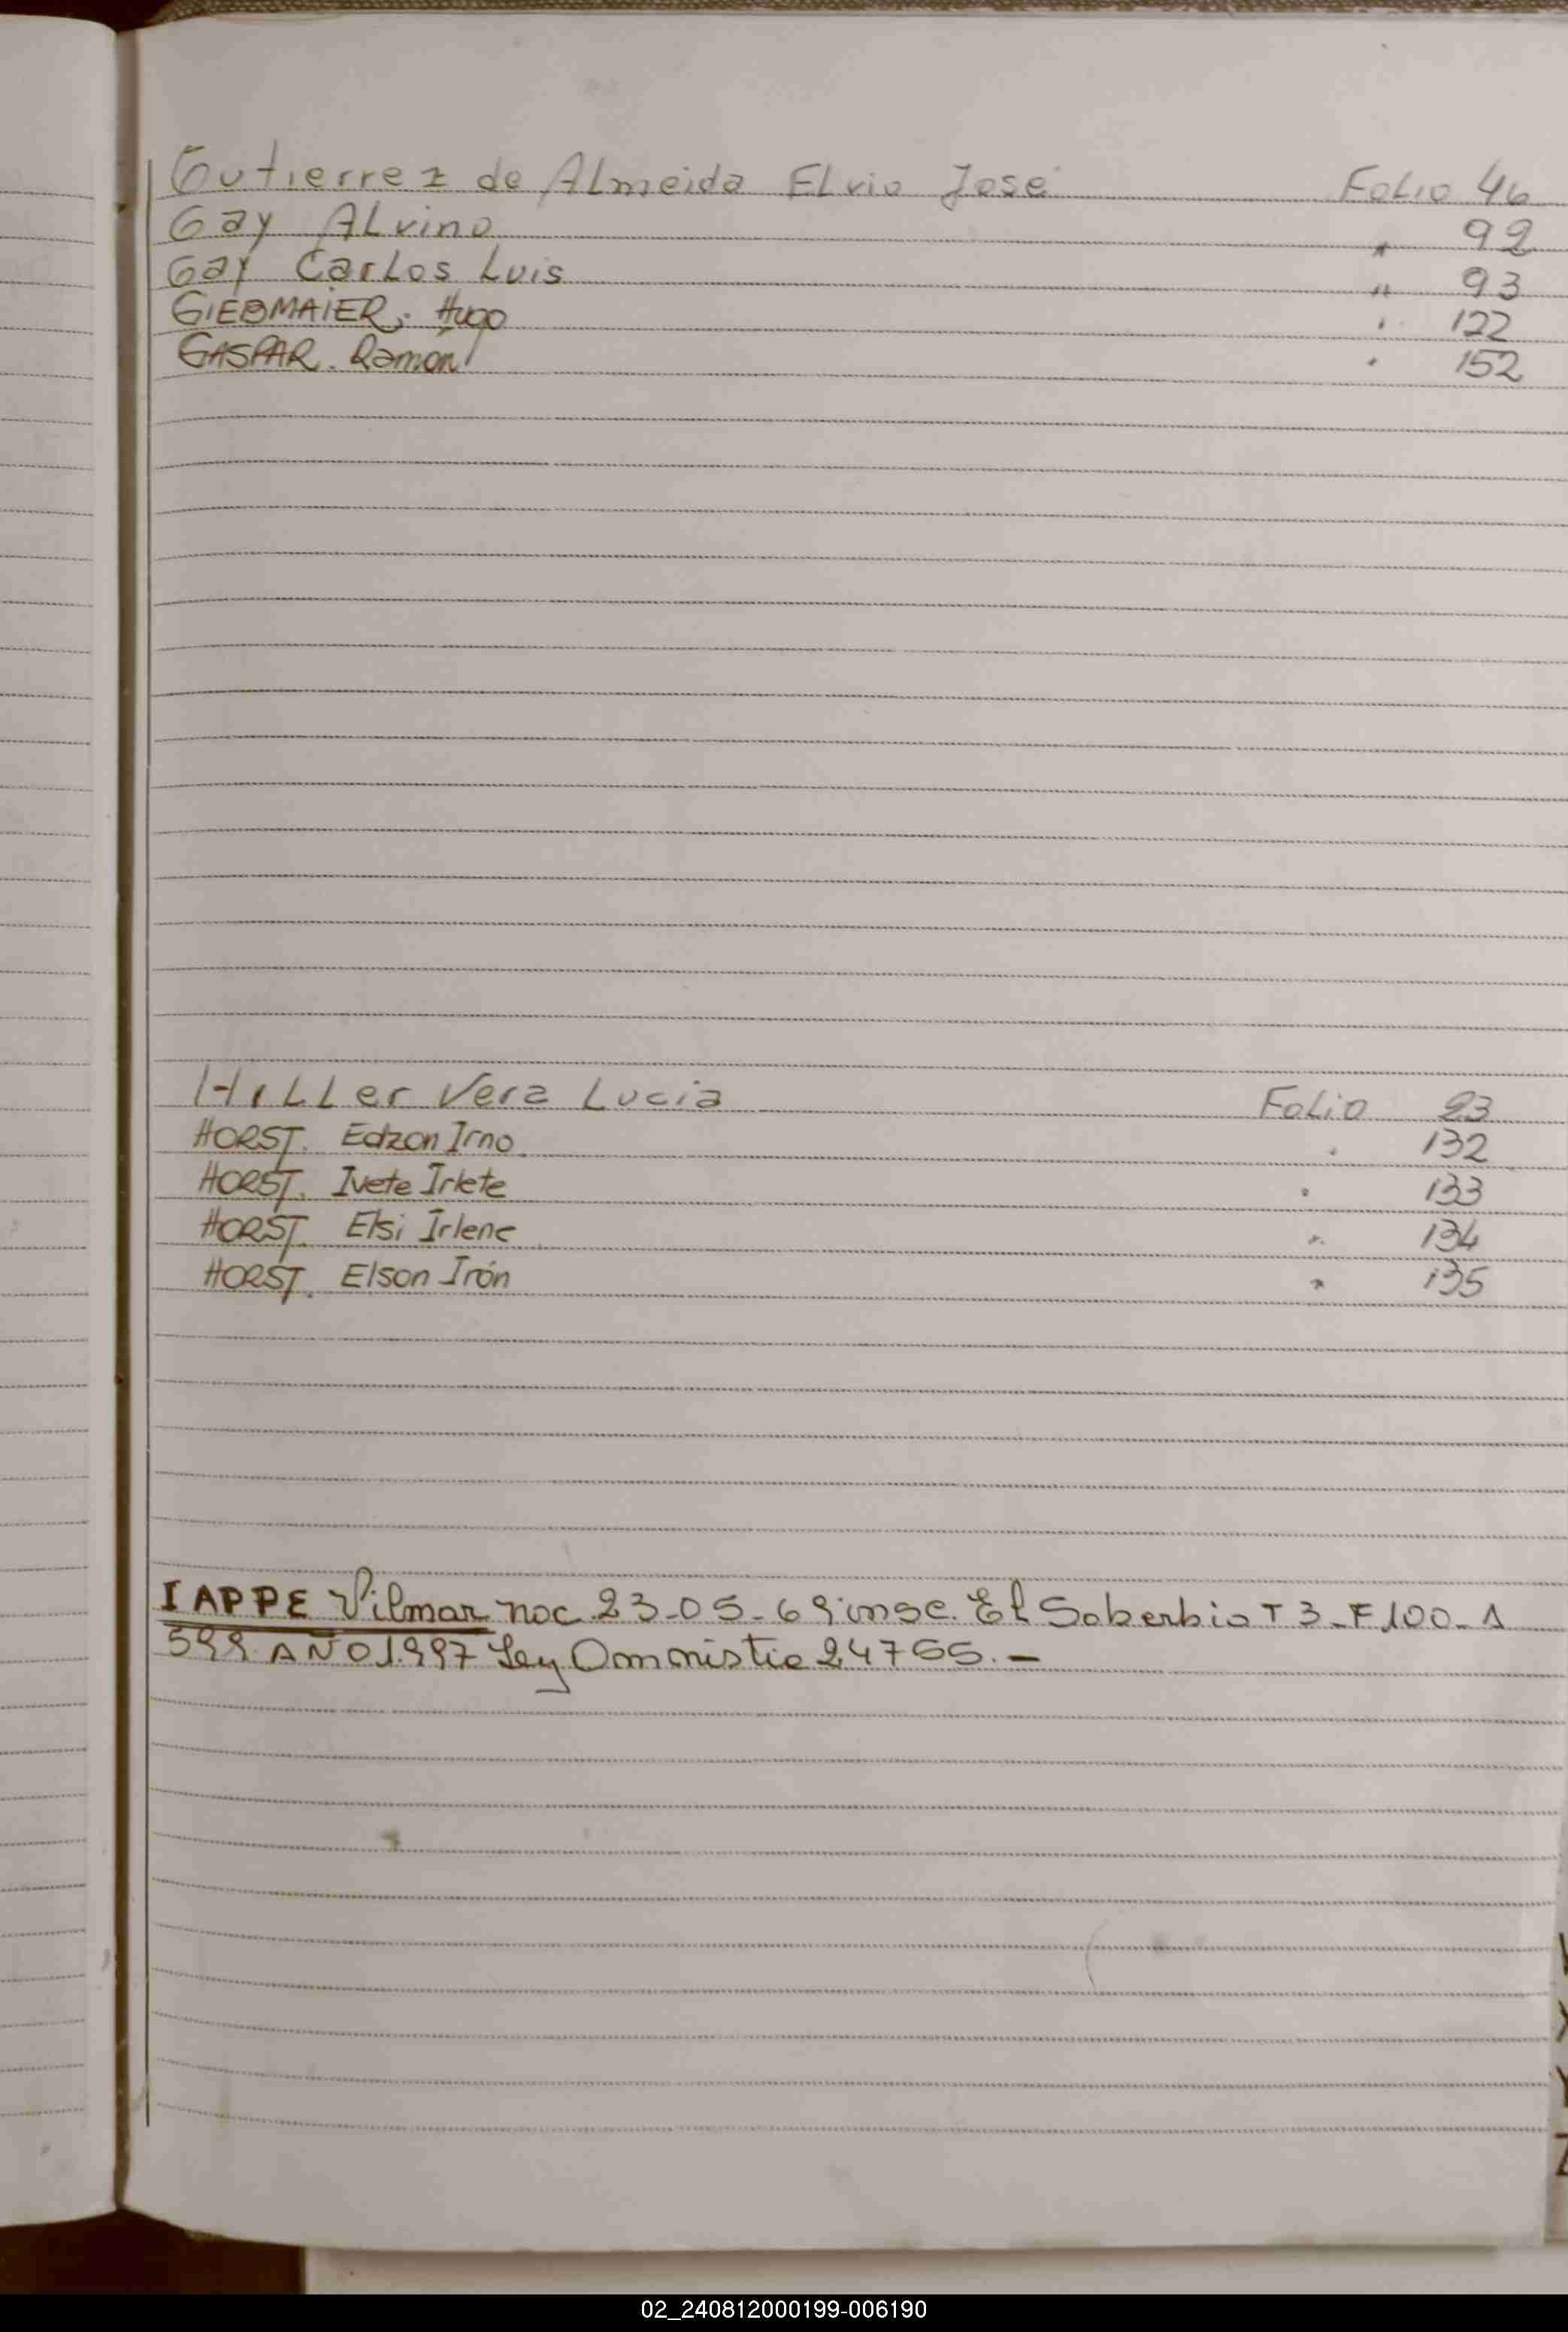 Gutierrez de Almeida Elvio Jose Folio 46
Gay Alvino " 92
Gay Carlos Luis " 93
GIEBMAIER. Hugo " 122
GASPAR. Ramon " 152
Hiller Vera Lucia Folio 23
HORST. Edzon Irno " 132
HORST. Ivete Irlete " 133
HORST. Elsi Irlene " 134
HORST. Elson Irón " 135
IAPPE Vilmar nac. 23-05-69 insc. El Soberbio T 3-F 100-A
599 AÑO 1.997 Ley Amnistia 24755.-
V
X
Y
Z
02_240812000199-006190